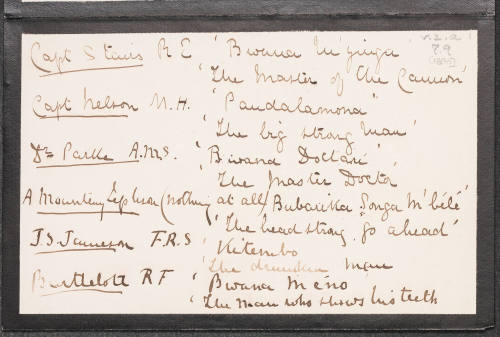 v.2.a.1
Capt Stairs R E 'Bwana M'zinga'
79
'The Master of the Cannon'
Capt Nelson M.H. 'Pandalamona'
'The big strong man'
Dr Parke A.M.S. 'Bwana Doctari'
'The Master Doctor
A Mounteney Jephson (nothing at all) 'Bubarika Songa M'bélé'
'The head strong, go ahead'
J.S. Jameson F.R.S 'Kitembo
'The drunken man
Barttelott R F 'Bwana Meno
'The man who shows his teeth